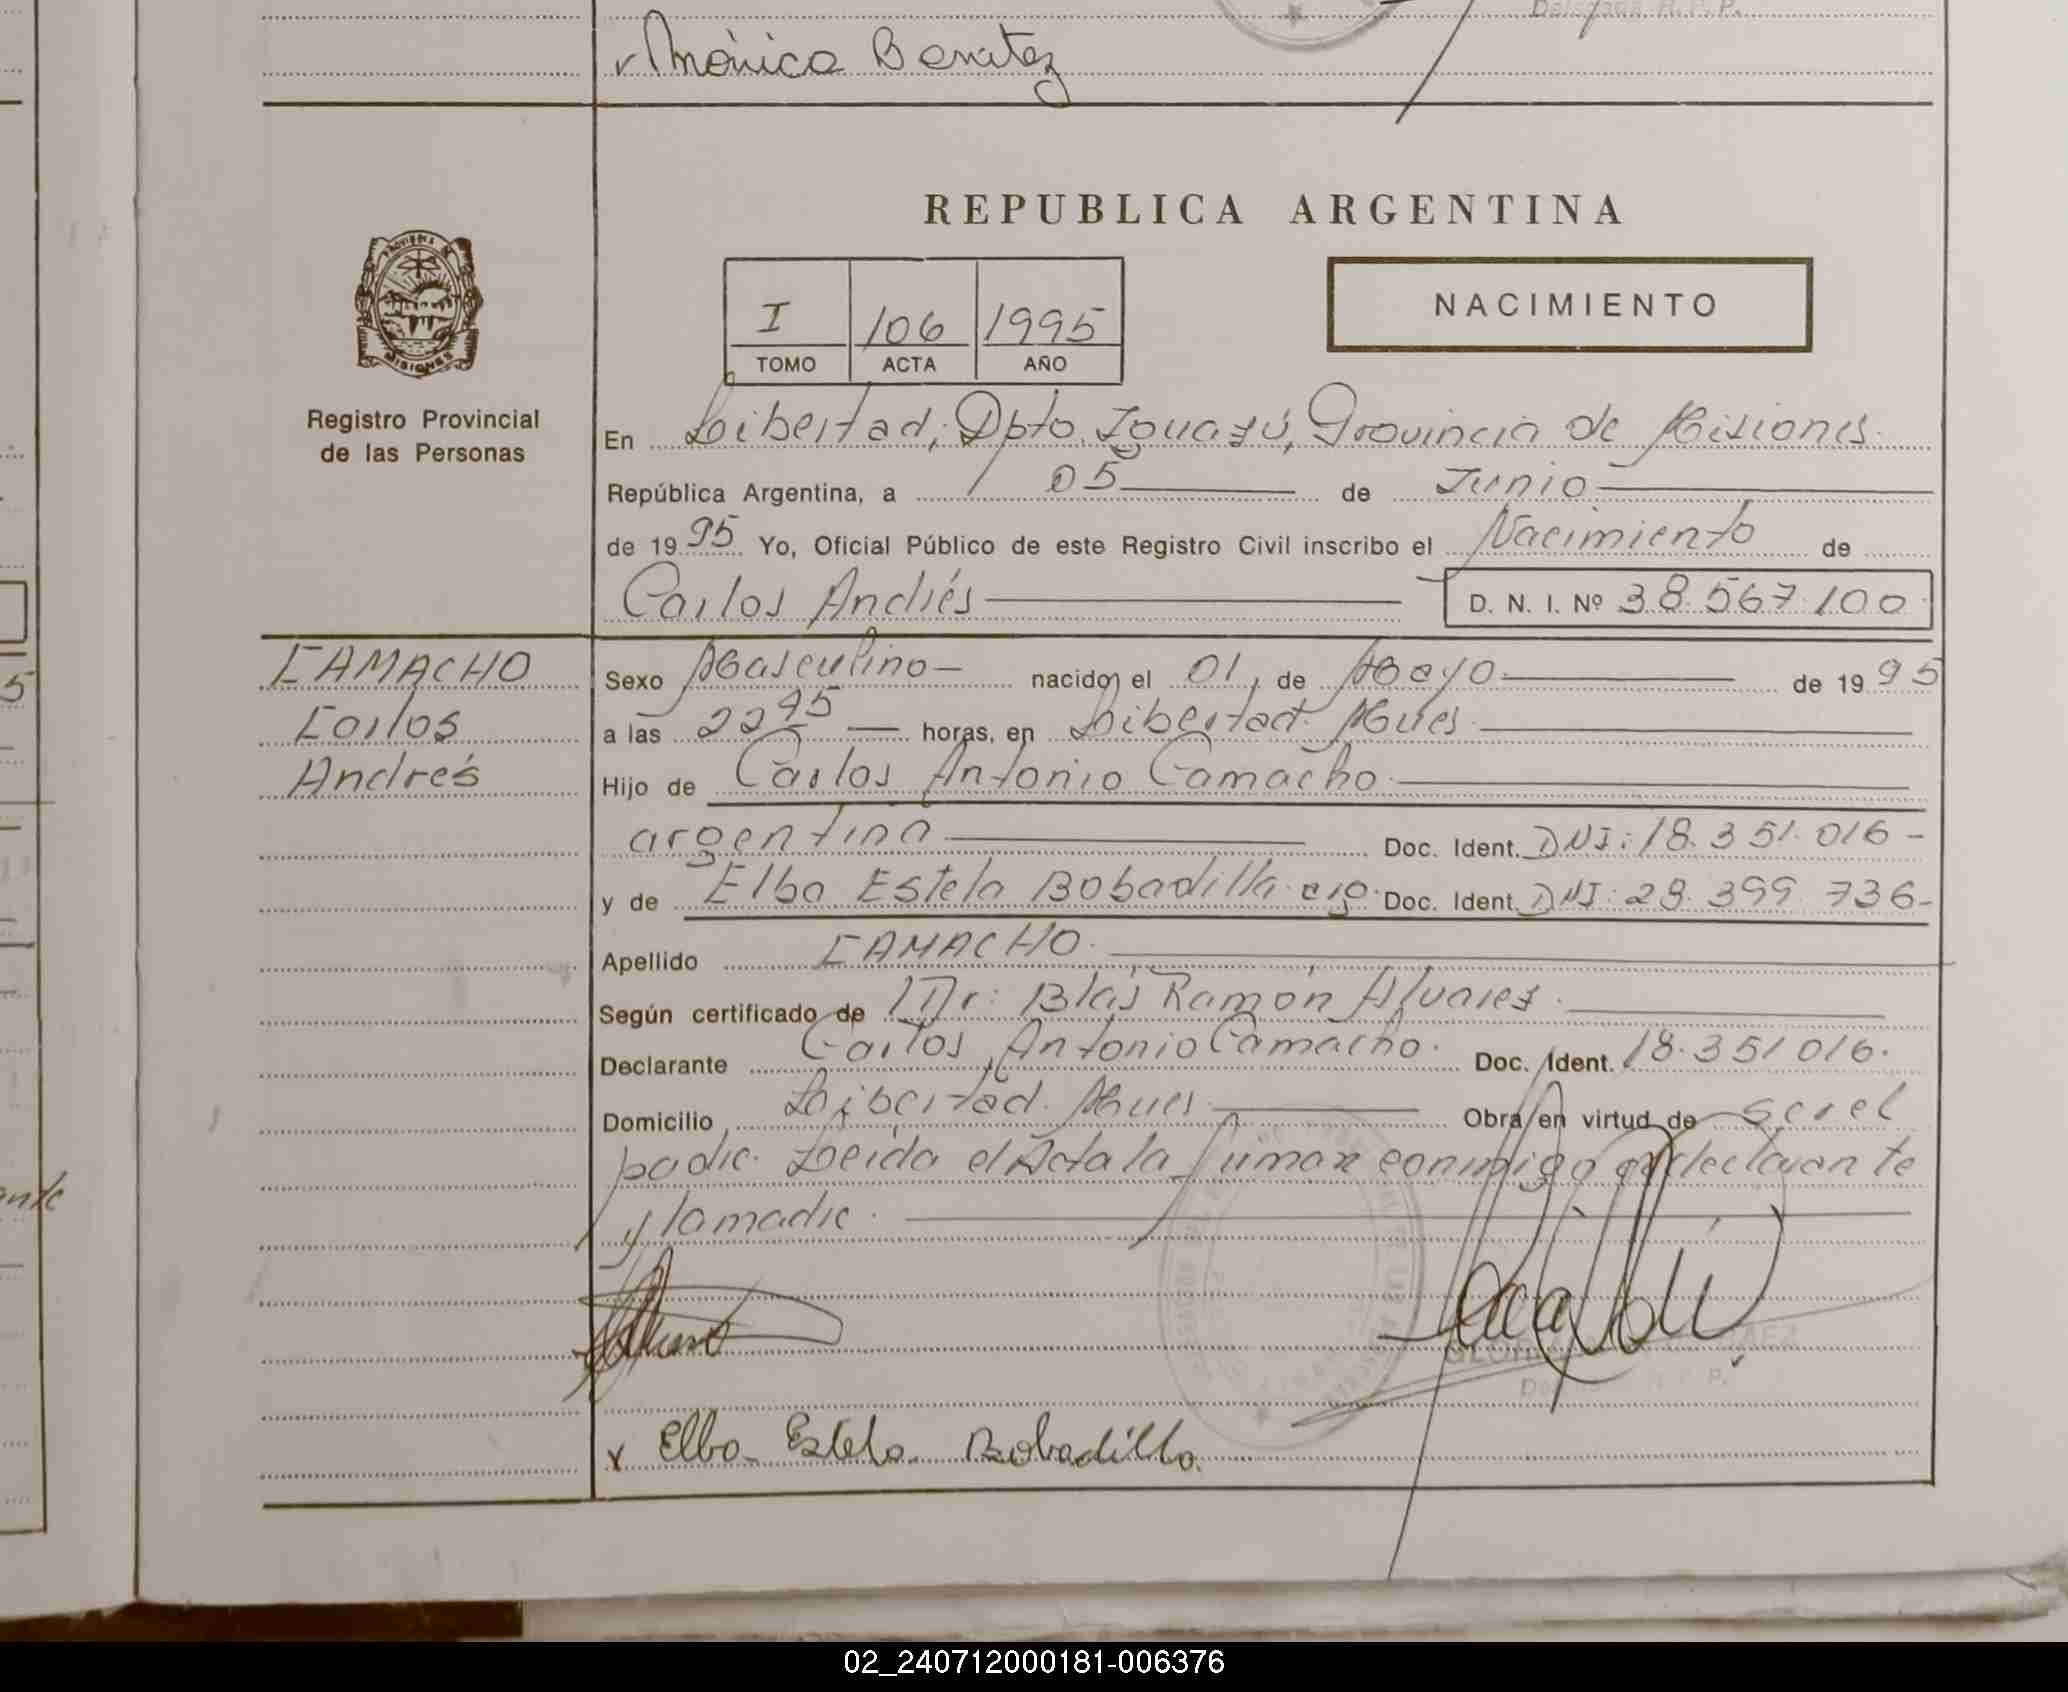 Mónica Benitez
REPUBLICA ARGENTINA
I 106 1995
TOMO ACTA AÑO
NACIMIENTO
PROVINCIA DE
MISIONES
Registro Provincial
de las Personas
En Libertad, Dpto. Iguazú, Provincia de Misiones.
República Argentina, a 05 de Junio
de 1995 Yo, Oficial Público de este Registro Civil inscribo el Nacimiento de
Carlos Andrés D. N. I. Nº 38.567.100
CAMACHO
Carlos
Andrés
Sexo Masculino nacido el 01 de Mayo de 1995
a las 22 45 horas, en Libertad. Mnes.
Hijo de Carlos Antonio Camacho.
argentina Doc. Ident. DNI: 18.351.016-
y de Elba Estela Bobadilla. Doc. Ident. DNI: 28.399.736-
Apellido CAMACHO.
Según certificado de Dr: Blás Ramón Alvarez.
Declarante Carlos Antonio Camacho. Doc. Ident. 18.351016.
Domicilio Libertad. Mnes. Obra en virtud de ser el
padre. Leída el Acta la firman conmigo el declarante
y la madre.
x Elba Estela Bobadilla.
02_240712000181-006376